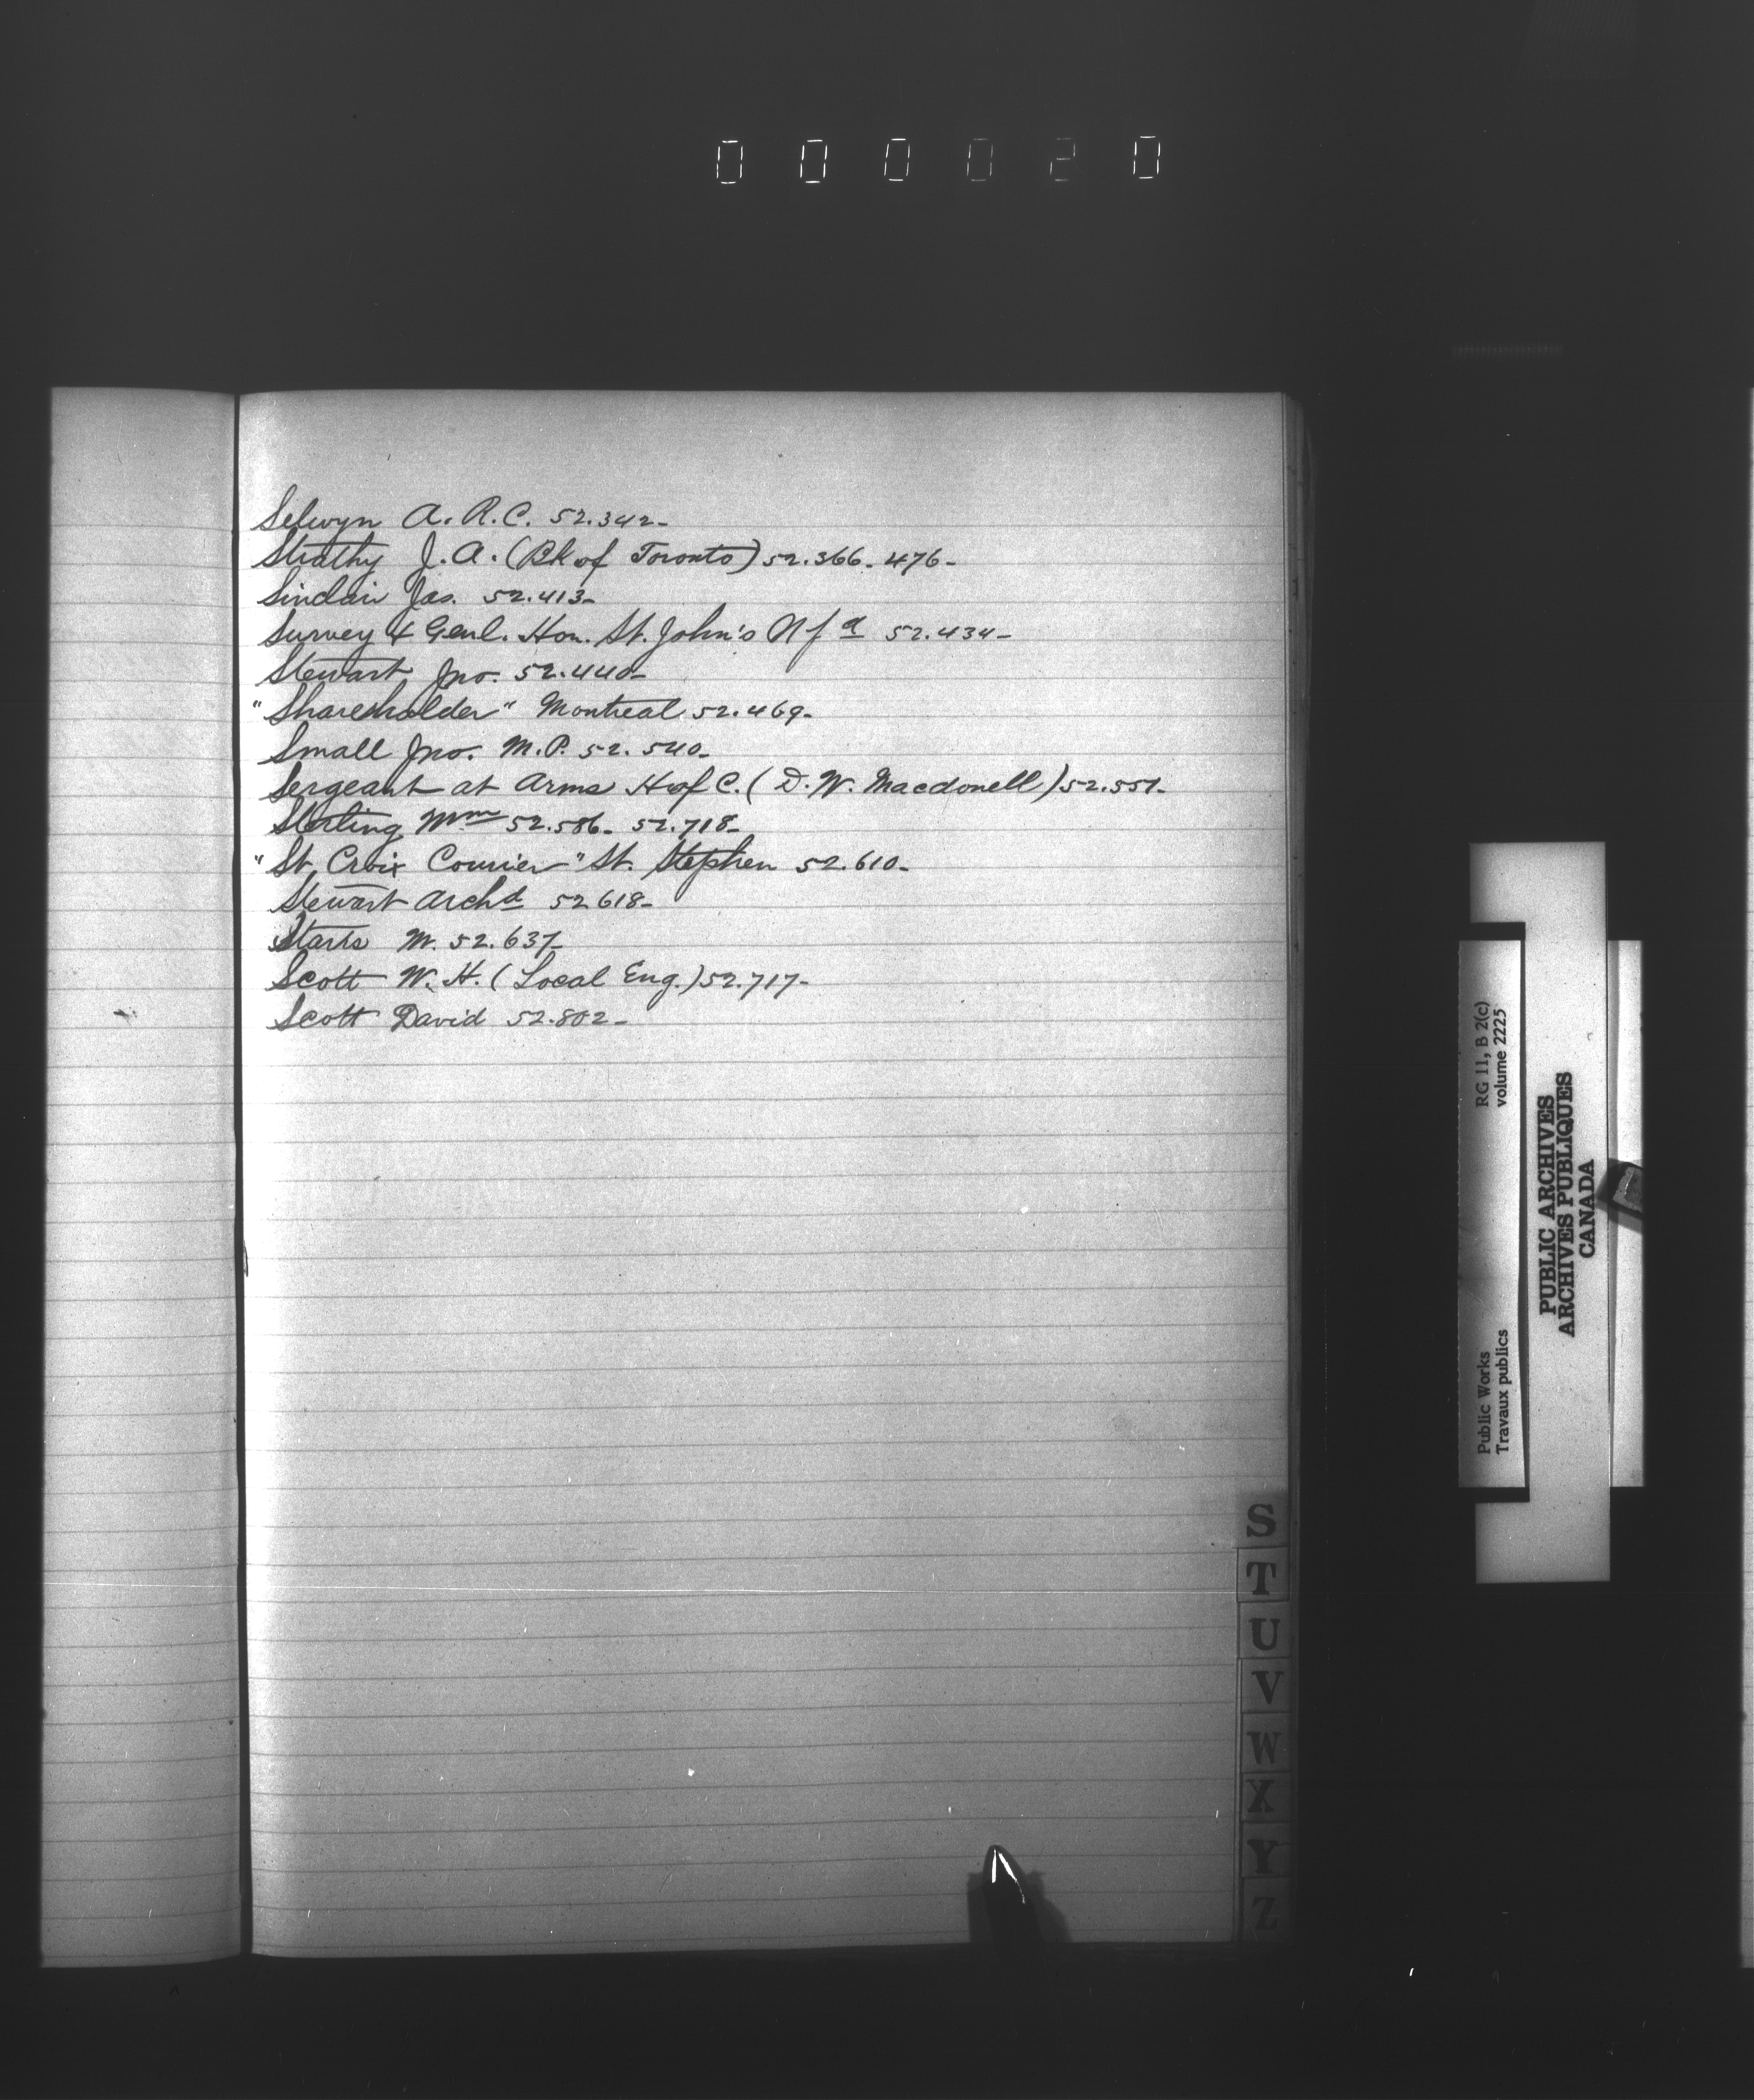 000020
Selwyn A. R. C. 52.342-
Strathy J. A. (Bk of Toronto) 52.366- 476-
Sinclair Jas. 52.413-
Survey & Genl. Hon. St. John's Nfd 52.434-
Stewart Jno. 52.440-
"Shareholder" Montreal 52.469-
Small Jno. M.P. 52.540-
Sergeant at Arms H of C. (D. W. Macdonell) 52.551-
Sterling Wm 52.586- 52.718-
"St. Croix Courier" St. Stephen 52.610-
Stewart Archd 52 618-
Starrs M. 52.637-
Scott W. H. (Local Eng.) 52.717-
Scott David 52.802-
S
T
U
V
W
X
Y
Z
Public Works
Travaux publics
RG 11, B 2(c)
volume 2225
PUBLIC ARCHIVES
ARCHIVES PUBLIQUES
CANADA